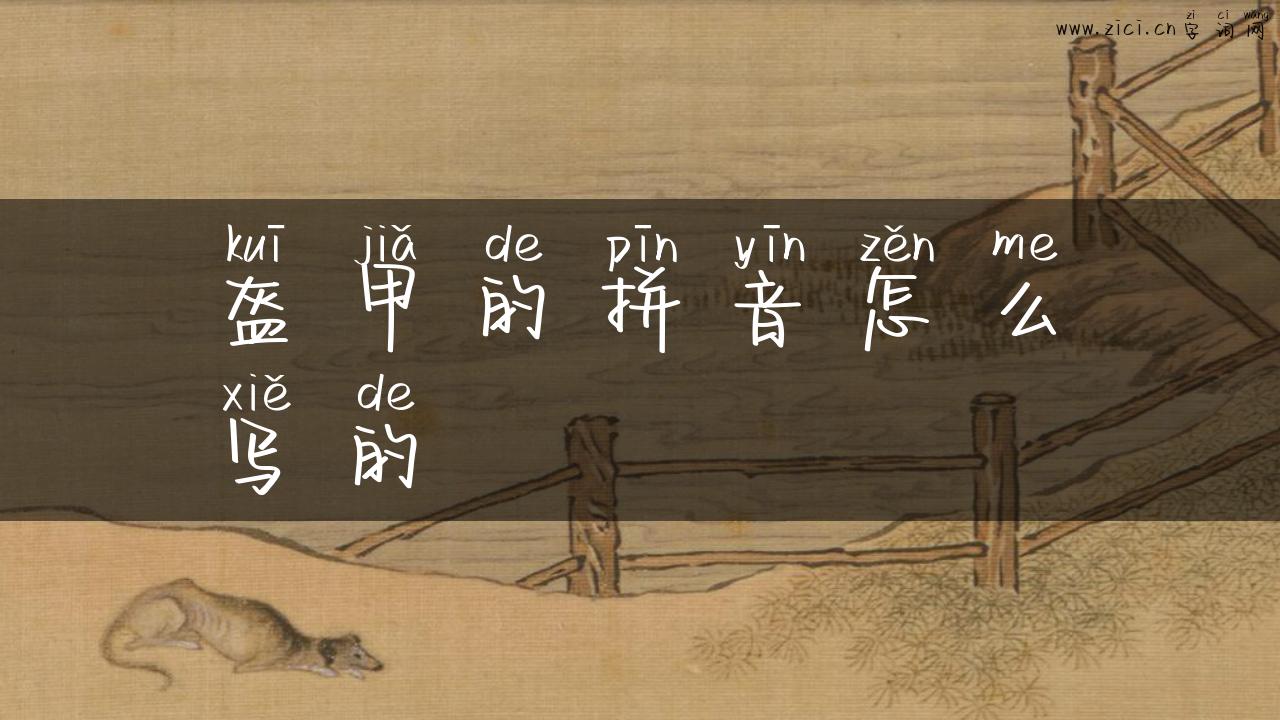 zi ci wang
www.zici.cn 字词网
kuī jiǎ de pīn yīn zěn me
盔甲的拼音怎么
xiě de
写的